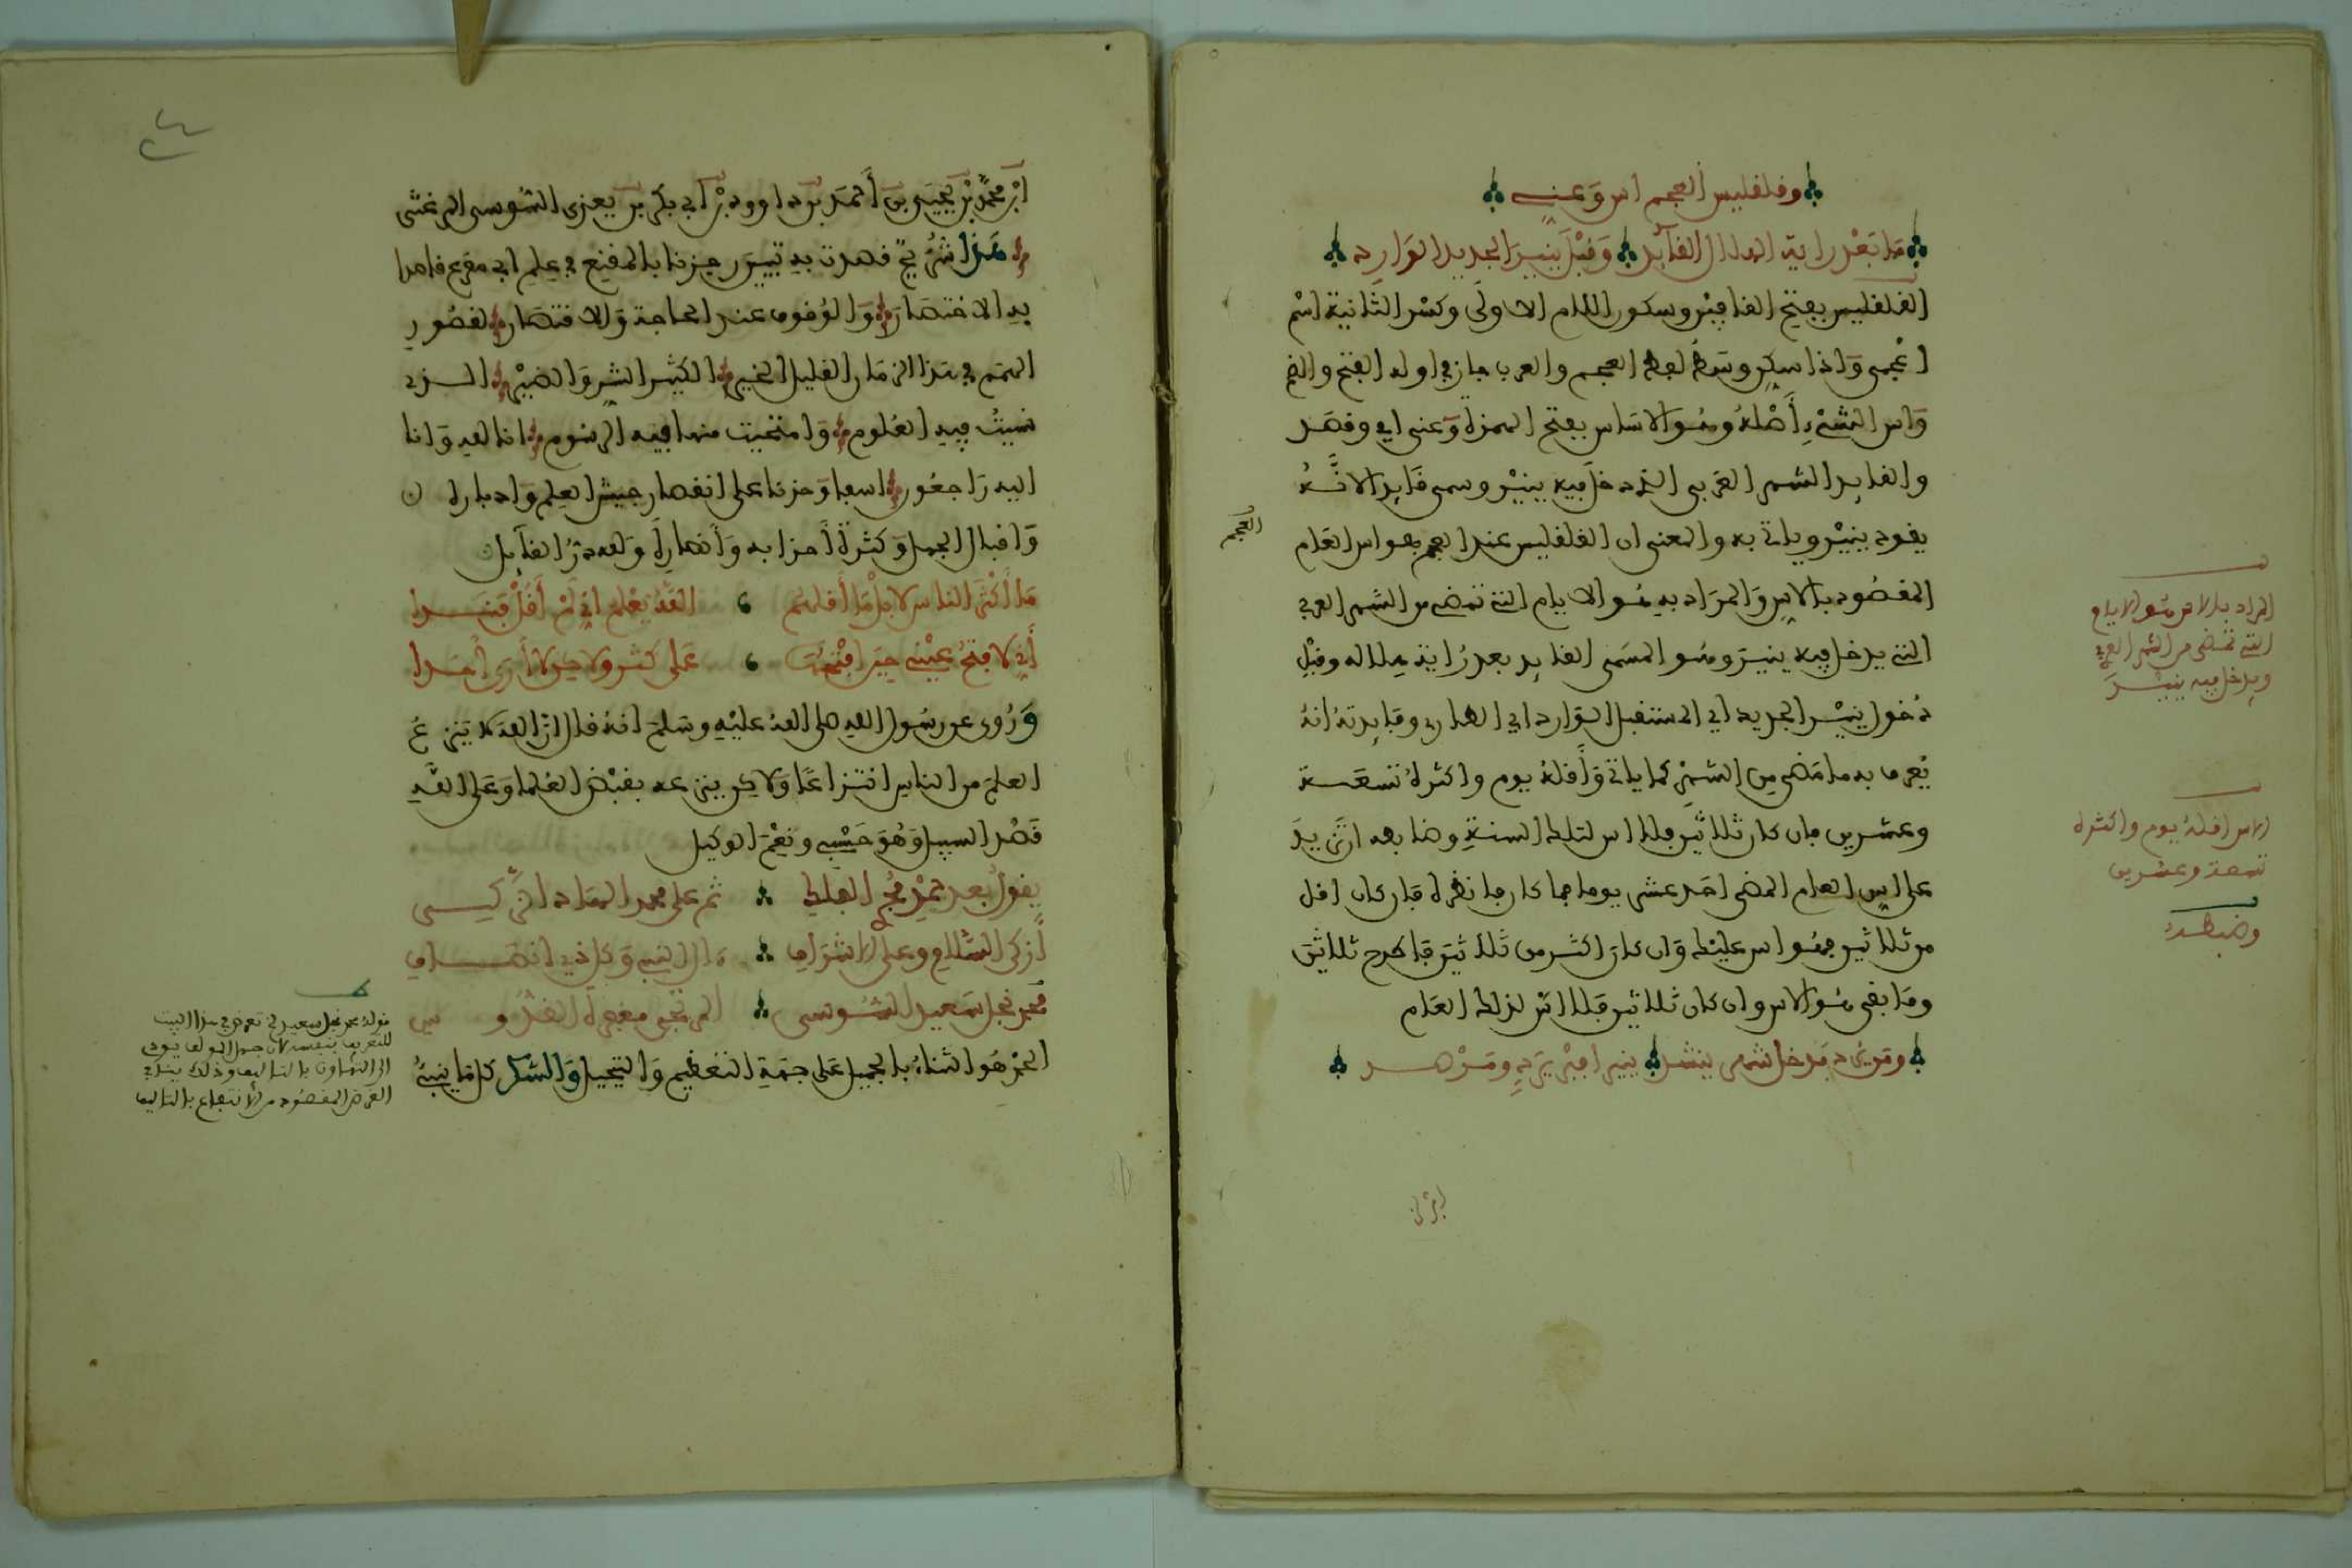 وقلقليس العجم اس وعنه
ما بعد راية الهلال القائد وقبل ينير الجديد الوارد
القلقليس بفتح القافين وسكون اللام الاولى وكسر الثانية اسم
اعجمي واذا سكن وسط لفظ العجم والعرب جاز في اوله الفتح والضم
واس الشيء أصله وهو الاساس بفتح الهمزة وعنى اي وقصد
والقايد الشهر العربي الذي دخل فيه ينير وسمي قايدا لانه
يقود ينير وياتي به والمعنى ان القلقليس عند العجم هو اس العام
العجم
المقصود بالاس والمراد به هو الايام التي تمضي من الشهر العربي
التي يدخل فيه ينير وهو المسمى القايد بعد راية هلاله وقبل
دخول ينير الجديد اي المستقبل الوارد اي الطاري وفايدته انه
يعرف به ما مضى من الشهر كما ياتي وأقله يوم واكثره تسعة
وعشرين فان كان ثلاثين فلا اس لتلك السنة وضابطه ان تزيد
على اس العام الماضي احد عشر يوما فما كان فانظره فان كان اقل
من ثلاثين فهو اس عليك وان كان اكثر من ثلاثين فاطرح ثلاثين
وما بقي هو الاس وان كان ثلاثين فلا اس لذلك العام
ومن يرد مدخل شهر ينشد ينير
المراد بالاس هو الايام
التي تمضي من الشهر العربي
ويدخل فيه ينير
الاس اقله يوم واكثره
تسعة وعشرين
وضبطه
ابن محمد بن يحيى بن أحمد بن داوود بن ابي بكر بن يعزى السوسي المرغتي
هذا شرح قصدت به تبيين رجزنا بالمقنع في علم ابي مقرع قاصدا
به الاختصار والوقوف عند الحاجة والاقتصار لقصور
الهمم في هذا الزمان القليل الخير الكثير الشر والضير الذي
نسيت فيه العلوم وامتحيت منها فيه الرسوم انا لله وانا
اليه راجعون اسفا وحزنا على انقصار جيش العلم وادباره
واقبال الجهل وكثرة أحزابه وأنصاره ولله در القايل
ما أكثر الناس لا بل ما أقلهم الله يعلم اني لم أقل فندا
أني لافتح عيني حين افتحها على كثير ولاكن لا أرى أحدا
وروي عن رسول الله صلى الله عليه وسلم انه قال ان الله لا ينزع
العلم من الناس انتزاعا ولاكن ينزعه بقبض العلما وعلى الله
قصد السبيل وهو حسبي ونعم الوكيل
يقول بعد حمد مجري الفلك ثم على محمد الهادي الزكي
أزكى السلام وعلى الاشراف ءال النبي وكل ذي انصاف
محمد نجل سعيد السوسي
الحمد هو الثناء بالجميل على جهة التعظيم والتبجيل والشكر كل ما ينبئ
قوله محمد نجل سعيد الخ تعرض في هذا البيت
للتعريف بنفسه لان جهل المؤلف يودي
الى التهاون بالتاليف وذلك ينافي
الغرض المقصود من الانتفاع بالتاليف